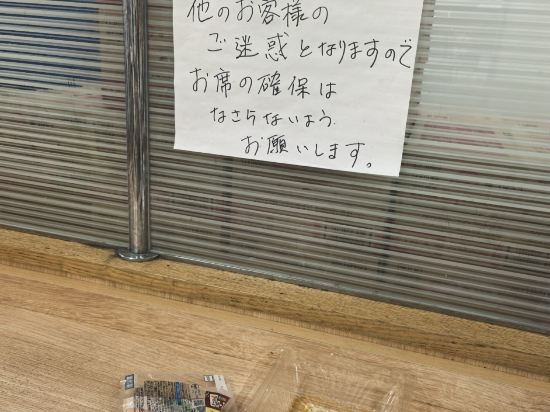 他のお客様の
ご迷惑となりますので
お席の確保は
なさらないよう
お願いします。